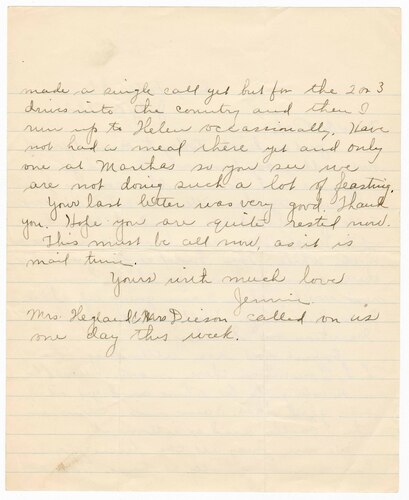 made a single call yet but for the 2 or 3
drives into the country and then I
run up to Helen occassionally. Have
not had a meal there yet and only
one at Marthas so you see we
are not doing such a lot of feasting.
Your last letter was very good. Thank
you. Hope you are quite rested now.
This must be all now, as it is
mail time.
Yours with much love
Jennie
Mrs. & Mrs called on us
one day this week.